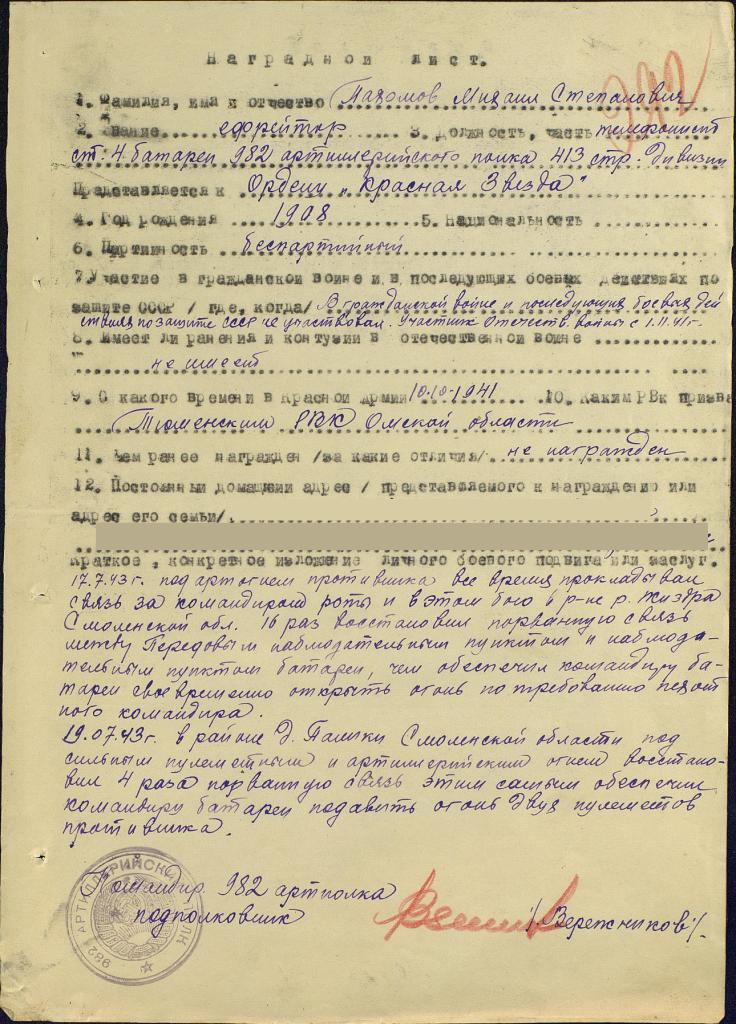 Наградной лист.
1. Фамилия, имя и отчество Пахомов Михаил Степанович
2. Звание ефрейтор 3. Должность, часть телефонист
ст. 4 батареи 982 артиллерийского полка 413 стр. Дивизии
Представляется к Ордену „Красная Звезда"
4. Год рождения 1908 5. Национальность
6. Партийность беспартийный
7. Участие в гражданской войне и в последующих боевых действиях по
защите СССР / где, когда/ В гражданской войне и последующих боевых дей
ствиях по защите СССР не участвовал. Участник Отечеств. войны с 1.11.41г.
8. Имеет ли ранения и контузии в отечественной войне
не имеет
9. С какого времени в Красной Армии 10.10-1941 10. Каким РВк призва
Тюменским РВК Омской области
11. Чем ранее награжден /за какие отличия/ не награжден
12. Постоянный домашний адрес / представляемого к награждению или
адрес его семьи/
Краткое, конкретное изложение личного боевого подвига или заслуг.
17.7.43г. под артогнем противника все время прокладывал
связь за командиром роты и в этом бою в р-не р. Жиздра
Смоленской обл. 16 раз восстановил порванную связь
между Передовым наблюдательным пунктом и наблюда-
тельным пунктом батареи, чем обеспечил командиру ба-
тареи своевременно открыть огонь по требованию пехот
ного командира.
19.07.43г. в районе д. Палики Смоленской области под
сильным пулеметным и артиллерийским огнем восстано-
вил 4 раза порванную связь этим самым обеспечил
командиру батареи подавить огонь двух пулеметов
противника.
Командир 982 артполка
подполковник /Вережников/.
982 АРТИЛЛЕРИЙСКИЙ ПОЛК